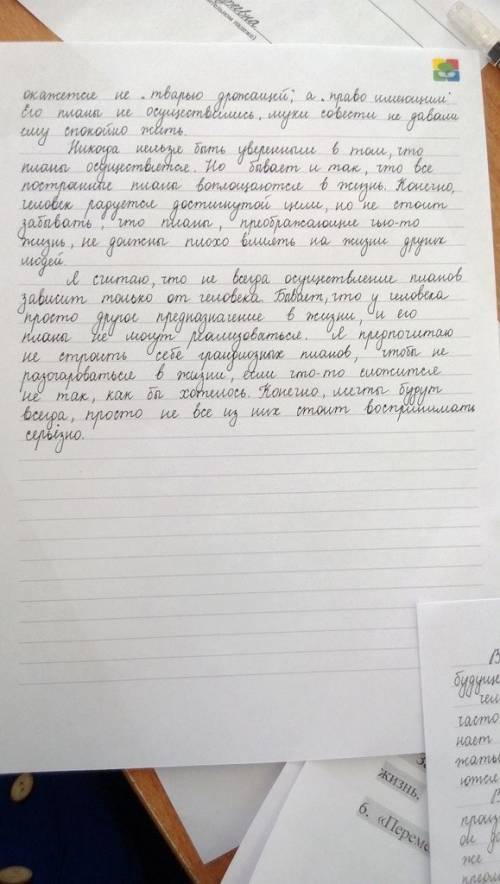 окажется не „тварью дрожащей", а „право имеющим".
Его планы не осуществились, муки совести не давали
ему спокойно жить.
Никогда нельзя быть уверенным в том, что
планы осуществятся. Но бывает и так, что все
построенные планы воплощаются в жизнь. Конечно,
человек радуется достигнутой цели, но не стоит
забывать, что планы, преображающие чью-то
жизнь, не должны плохо влиять на жизни других
людей.
Я считаю, что не всегда осуществление планов
зависит только от человека. Бывает, что у человека
просто другое предназначение в жизни, и его
планы не могут реализоваться. Я предпочитаю
не строить себе грандиозных планов, чтобы не
разочароваться в жизни, если что-то сложится
не так, как бы хотелось. Конечно, мечты будут
всегда, просто не все из них стоит воспринимать
серьёзно.
В
будуще
чел
часто
нает
жать
ются
В
произ
он до
же
жизнь.
6. «Переме